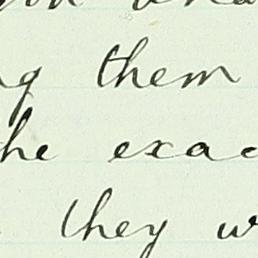 them
he exac
they w